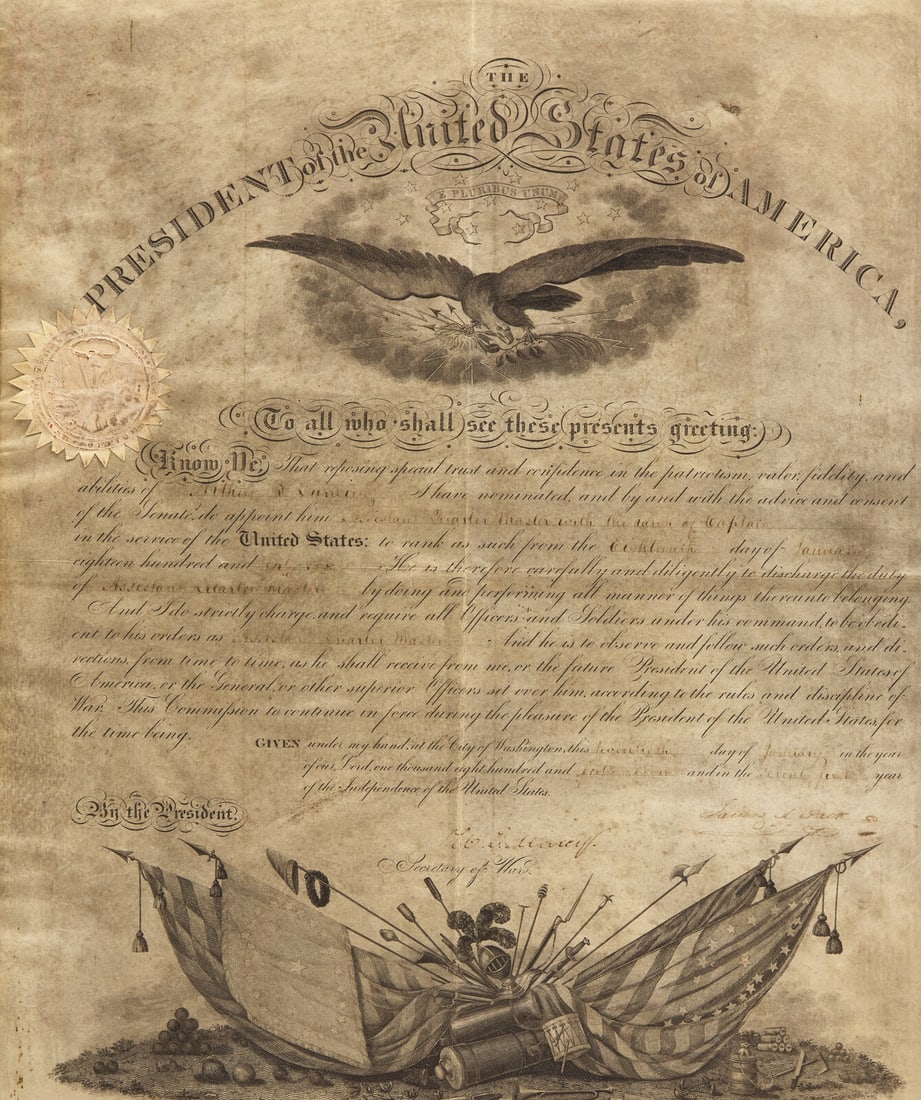 THE
PRESIDENT of the United States of AMERICA,
E PLURIBUS UNUM
To all who shall see these presents greeting:
Know Ye, That reposing special trust and confidence in the patriotism, valor, fidelity, and
abilities of I have nominated, and by and with the advice and consent
of the Senate, do appoint him Assistant Quarter Master with the rank of Captain
in the service of the United States: to rank as such from the Eighteenth day of January
eighteen hundred and He is therefore carefully and diligently to discharge the duty
of Assistant Quarter Master by doing and performing all manner of things thereunto belonging.
And I do strictly charge, and require all Officers and Soldiers under his command, to be obedi-
ent to his orders as Assistant Quarter Master And he is to observe and follow such orders, and di-
rections, from time to time, as he shall receive from me, or the future President of the United States of
America, or the General, or other superior Officers set over him, according to the rules and discipline of
War. This Commission to continue in force during the pleasure of the President of the United States, for
the time being.
GIVEN under my hand, at the City of Washington, this day of January in the year
of our Lord, one thousand eight hundred and and in the year
of the Independence of the United States.
By the President,
James K. Polk
W. L. Marcy
Secretary of War.